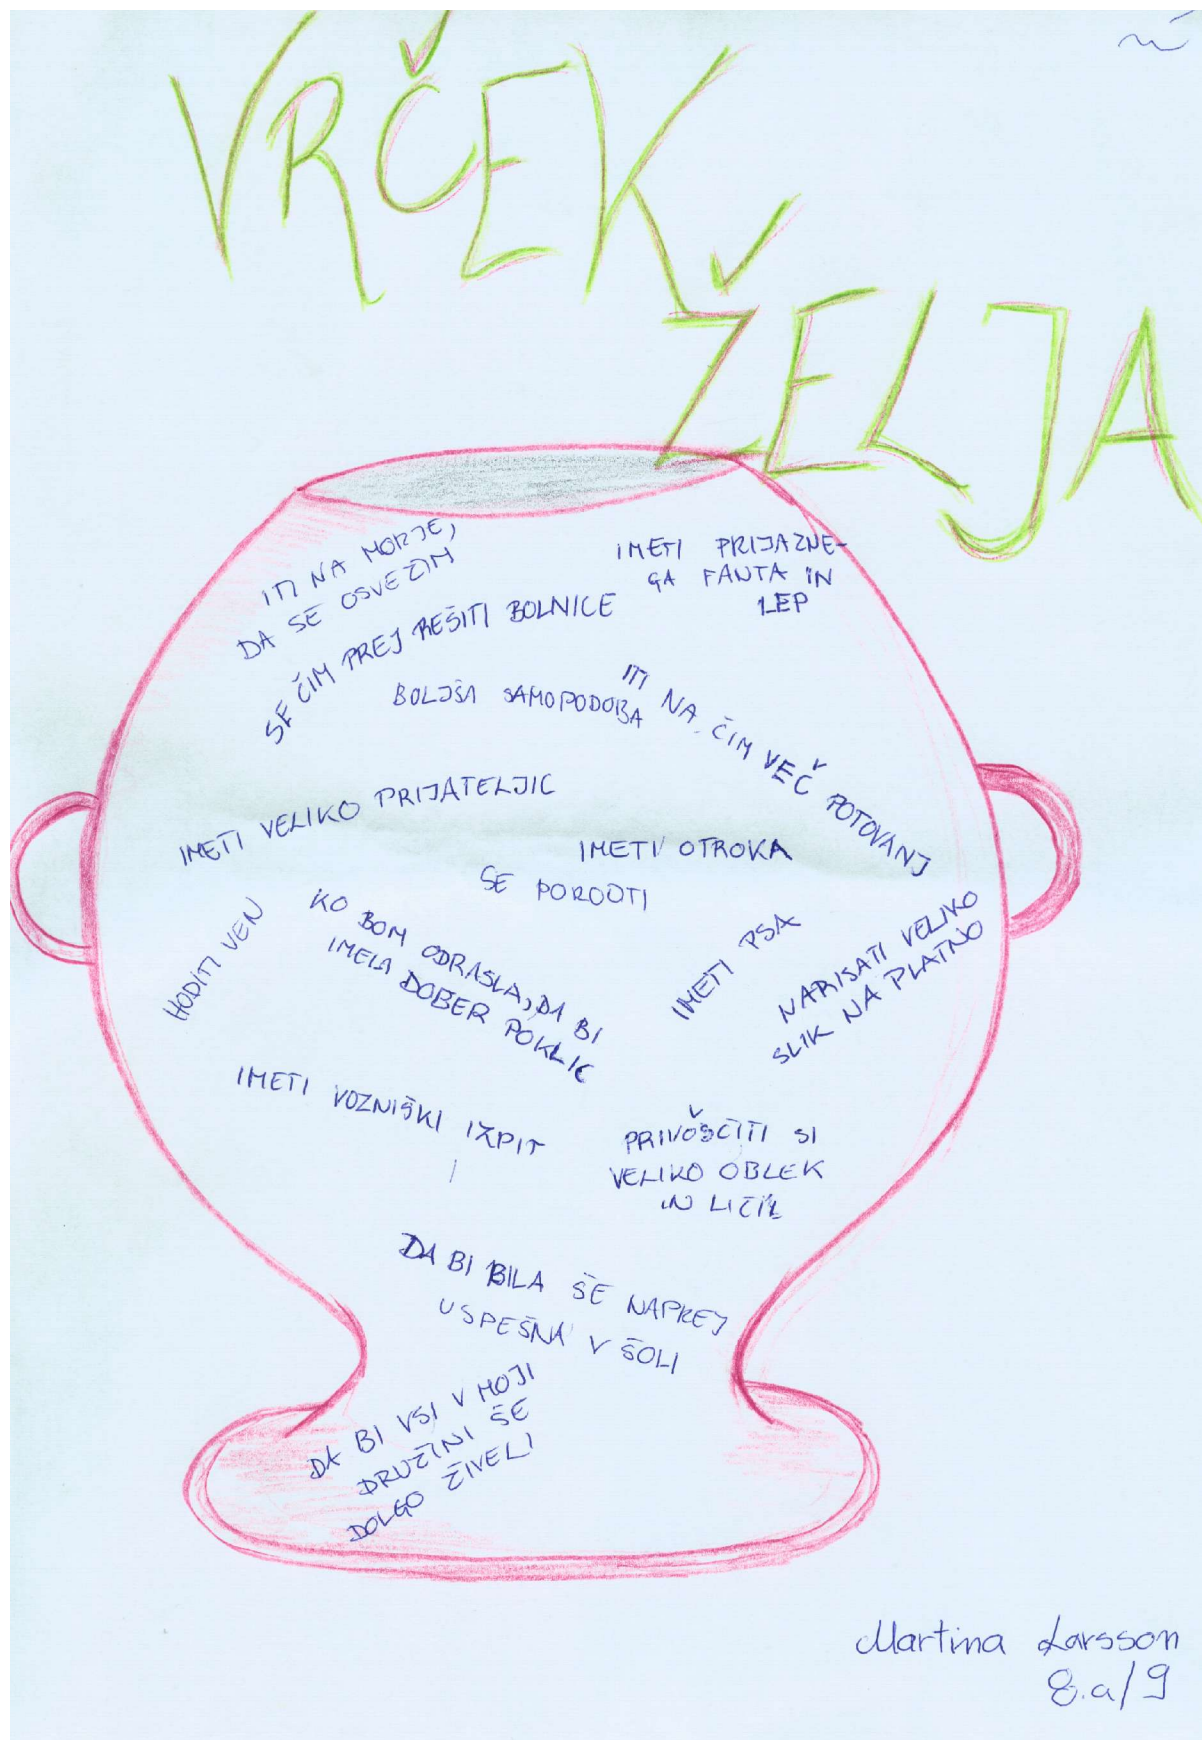 VRČEK
ŽELJA
ITI NA MORJE,
DA SE OSVEŽIM
IMETI PRIJAZNE-
GA FANTA IN
LEP
SE ČIM PREJ REŠITI BOLNICE
BOLJŠA SAMOPODOBA
ITI NA ČIM VEČ POTOVANJ
IMETI VELIKO PRIJATELJIC
IMETI OTROKA
SE POROČITI
HODITI VEN
KO BOM ODRASLA, DA BI
IMELA DOBER POKLIC
IMETI PSA
NARISATI VELIKO
SLIK NA PLATNO
IMETI VOZNIŠKI IZPIT
PRIVOŠČITI SI
VELIKO OBLEK
IN LIČIL
DA BI BILA ŠE NAPREJ
USPEŠNA V ŠOLI
DA BI VSI V MOJI
DRUŽINI ŠE
DOLGO ŽIVELI
Martina Larsson
8.a/9